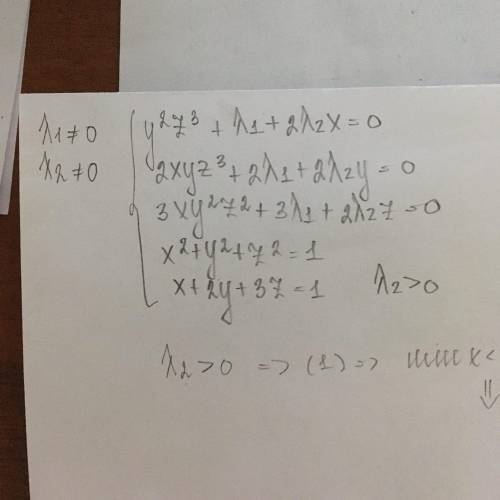 λ1≠0
λ2≠0
y²z³ + λ1 + 2λ2x = 0
2xyz³ + 2λ1 + 2λ2y = 0
3xy²z² + 3λ1 + 2λ2z = 0
x² + y² + z² = 1
x + 2y + 3z = 1 λ2 > 0
λ2 > 0 => (1) => min x <
⇓